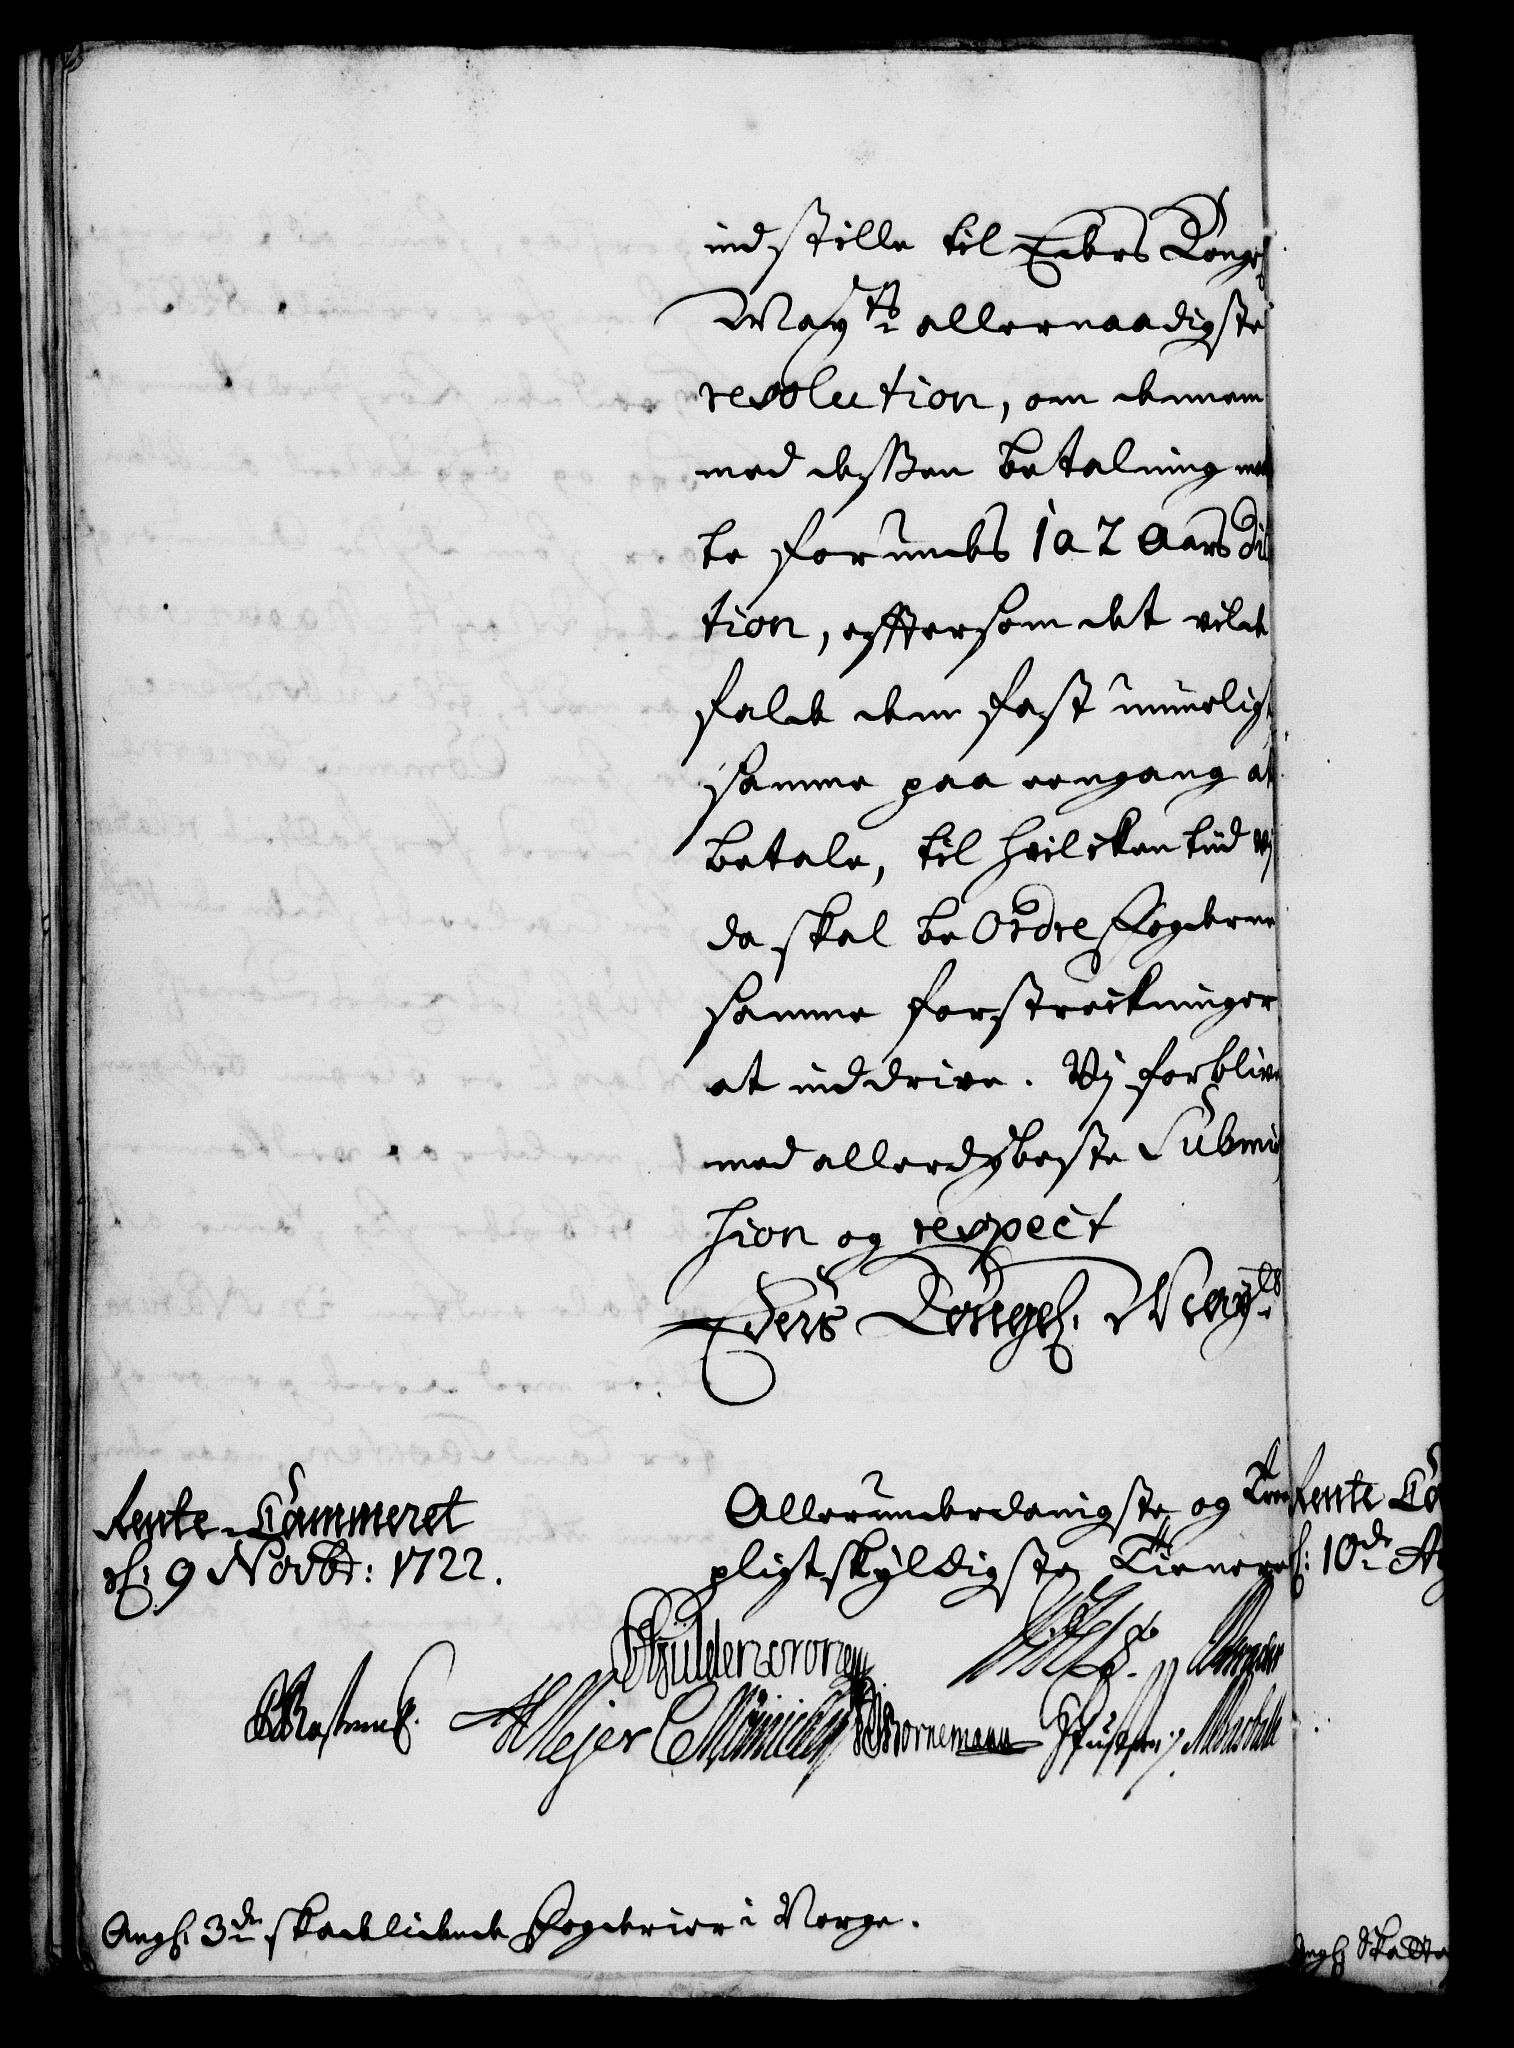 indstille til Eders Kongel
May:ts allernaadigste
resolution, om dennem
med dessen betalning maa
te forundes 1 a 2 Aars Dila
tion, efftersom det vilde
falde dem fast umuelig
samme paa eengang at
betale, til hvilcken tiid Vi
da skal beOrdre Fogderne
samme forstreckninger
at inddrive. Vj forblive
med allerdybeste Submis
sion og respect
Eders Kongel. May:ts
Allerunderdanigste og Troe
pligtskyldigste Tienere
Rente-Cammeret
d: 9 Novbr: 1722.
Güldencrone
Meyer
Bornemann
Ang: 3de skadelidende Fogderier i Norge.
Rente Ca
d: 10de
Ang: Skatte